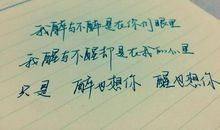 我醉与不醉是在你们眼里
我醒与不醒却是在我的心里
只是 醉也想你 醒也想你